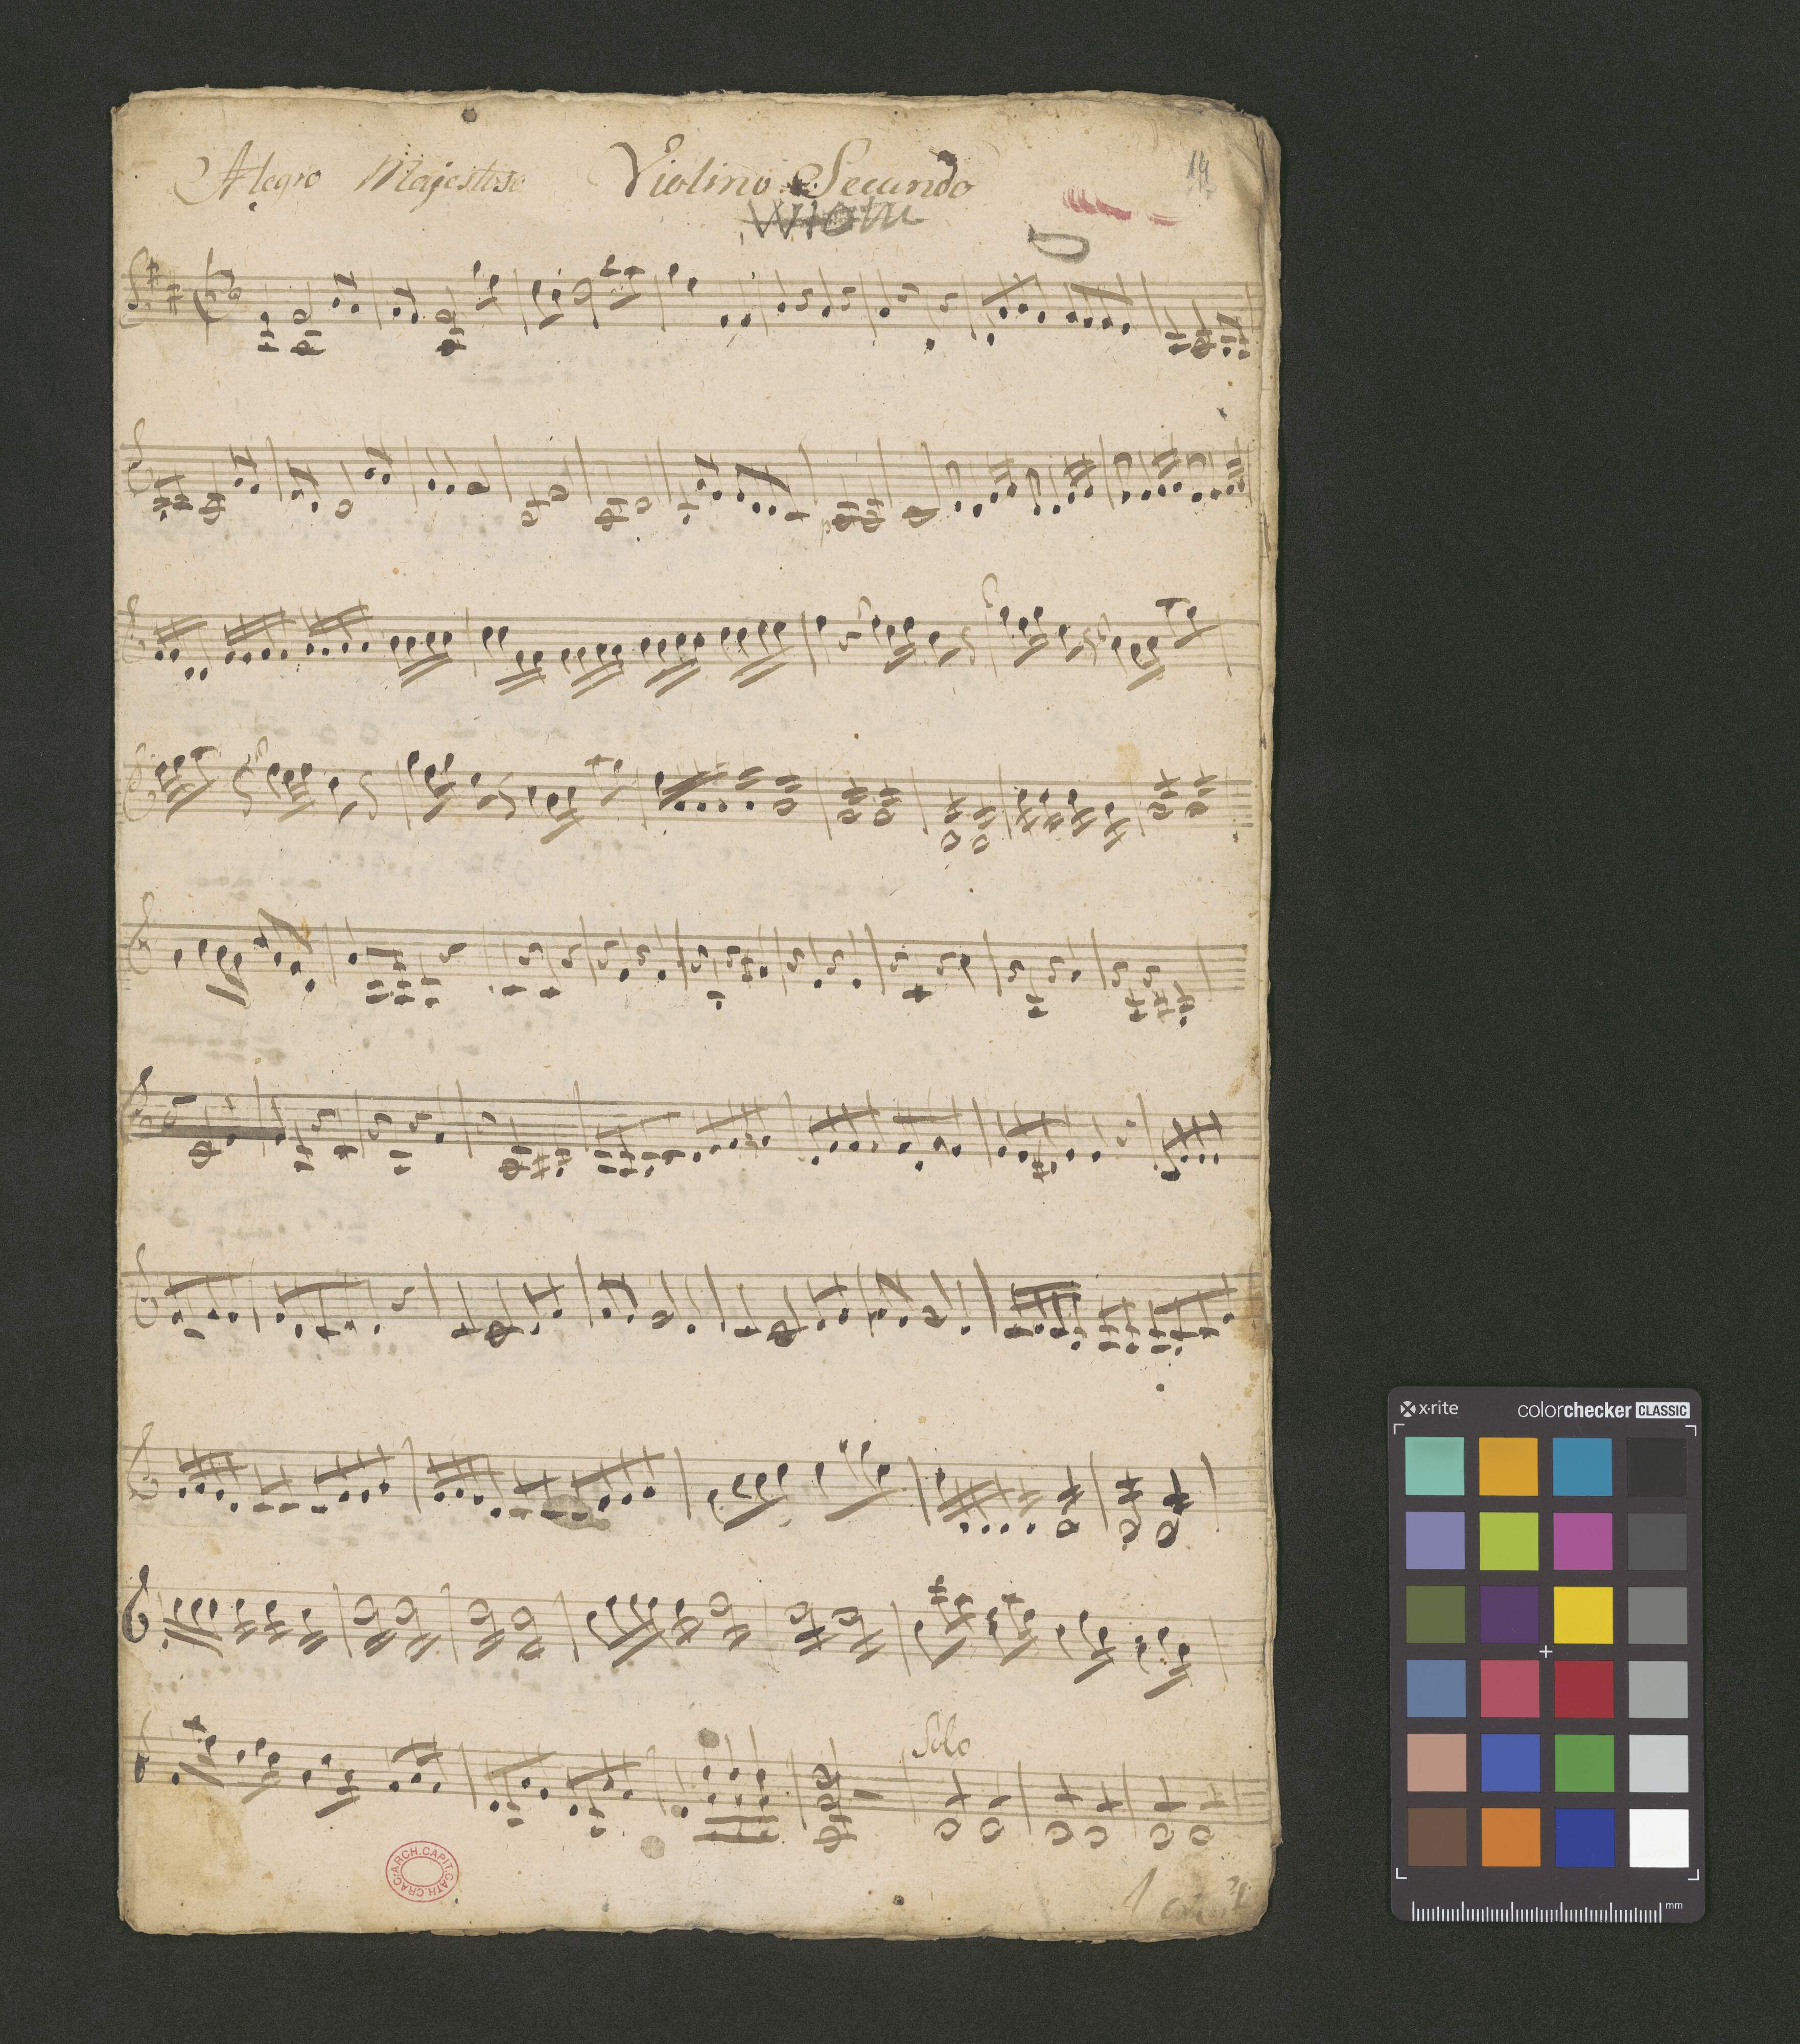 Alegro Majestoso Violino Secundo
14
Solo
ARCH.CAPIT.CATH.CRAC.
x-rite colorchecker CLASSIC
mm